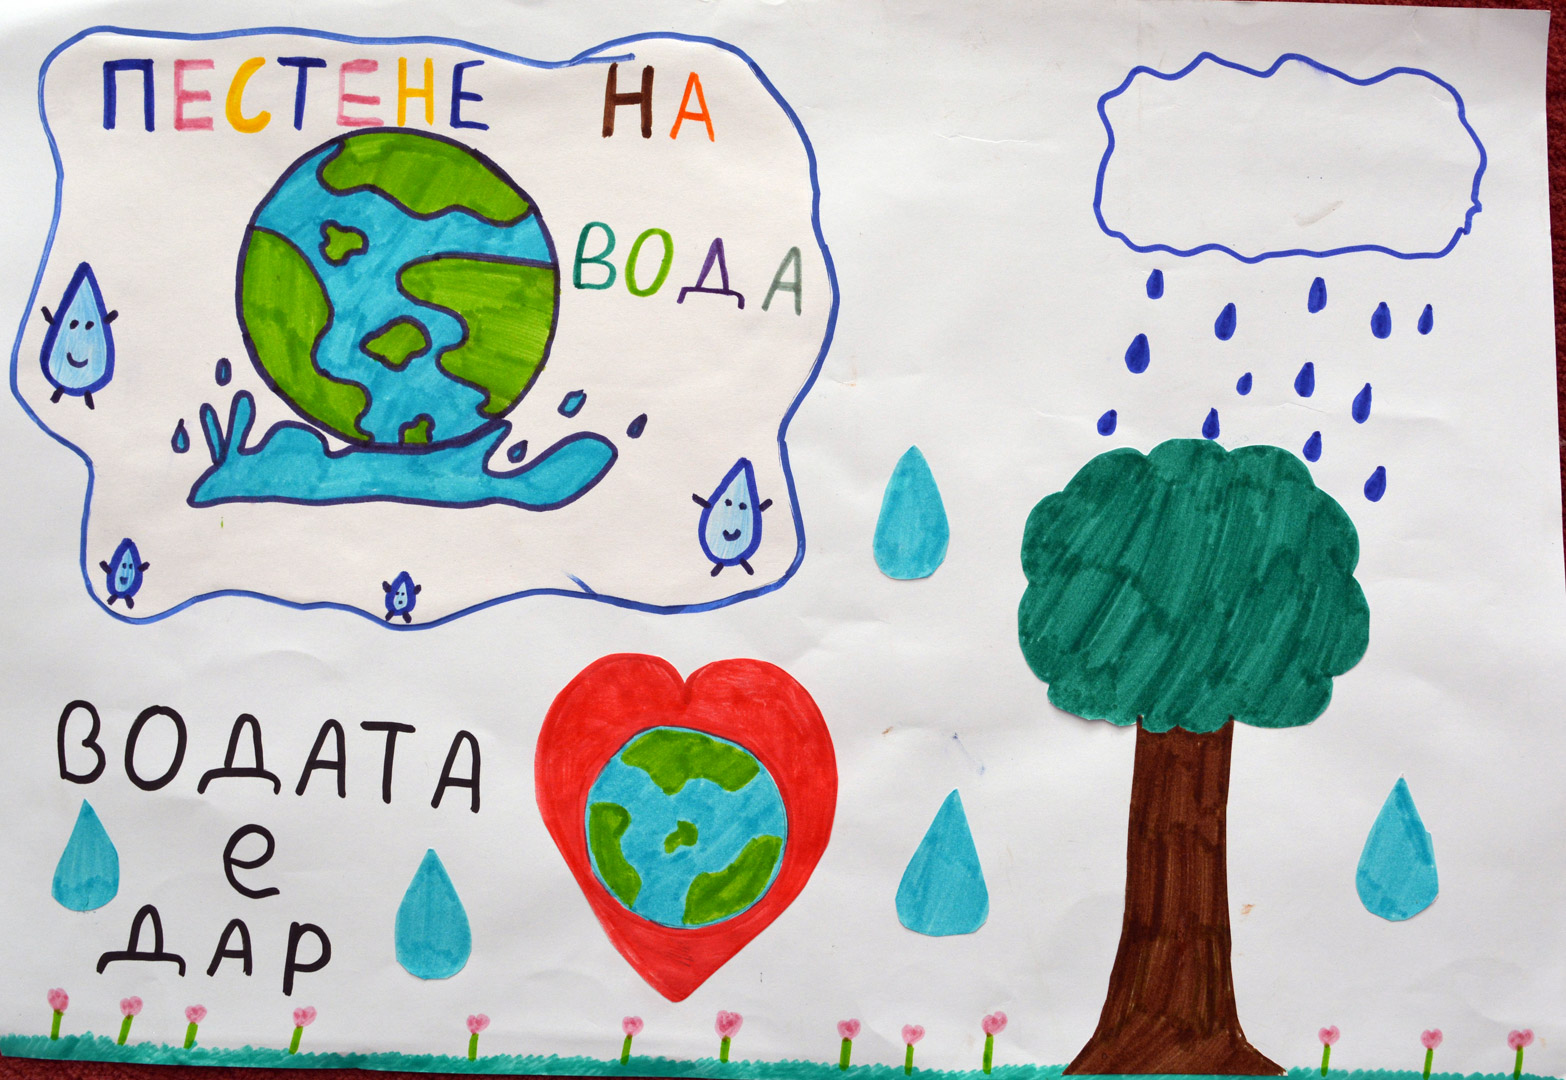 ПЕСТЕНЕ НА
ВОДА
ВОДАТА
е
ДАР